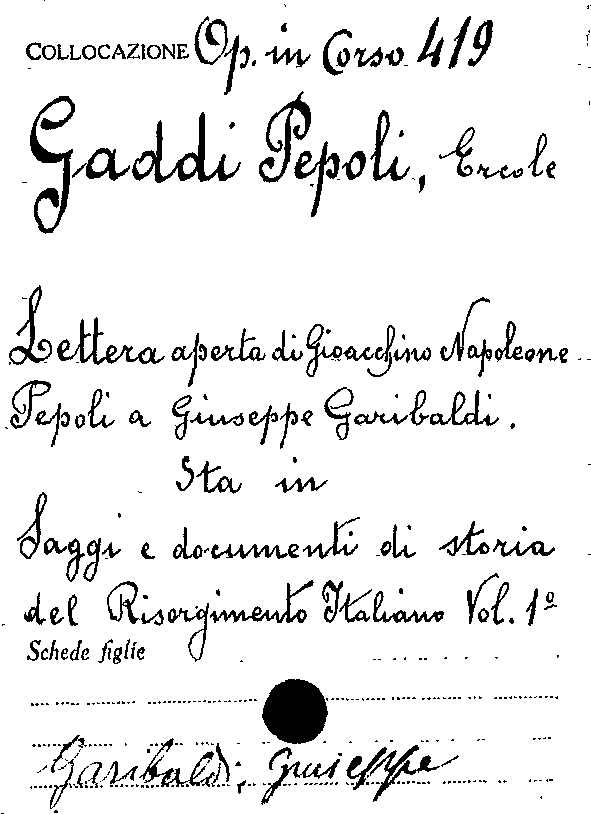 COLLOCAZIONE Op. in Corso 419
Gaddi Pepoli, Ercole
Lettera aperta di Gioacchino Napoleone
Pepoli a Giuseppe Garibaldi.
Sta in
Saggi e documenti di storia
del Risorgimento Italiano Vol. 1º
Schede figlie
Garibaldi, Giuseppe